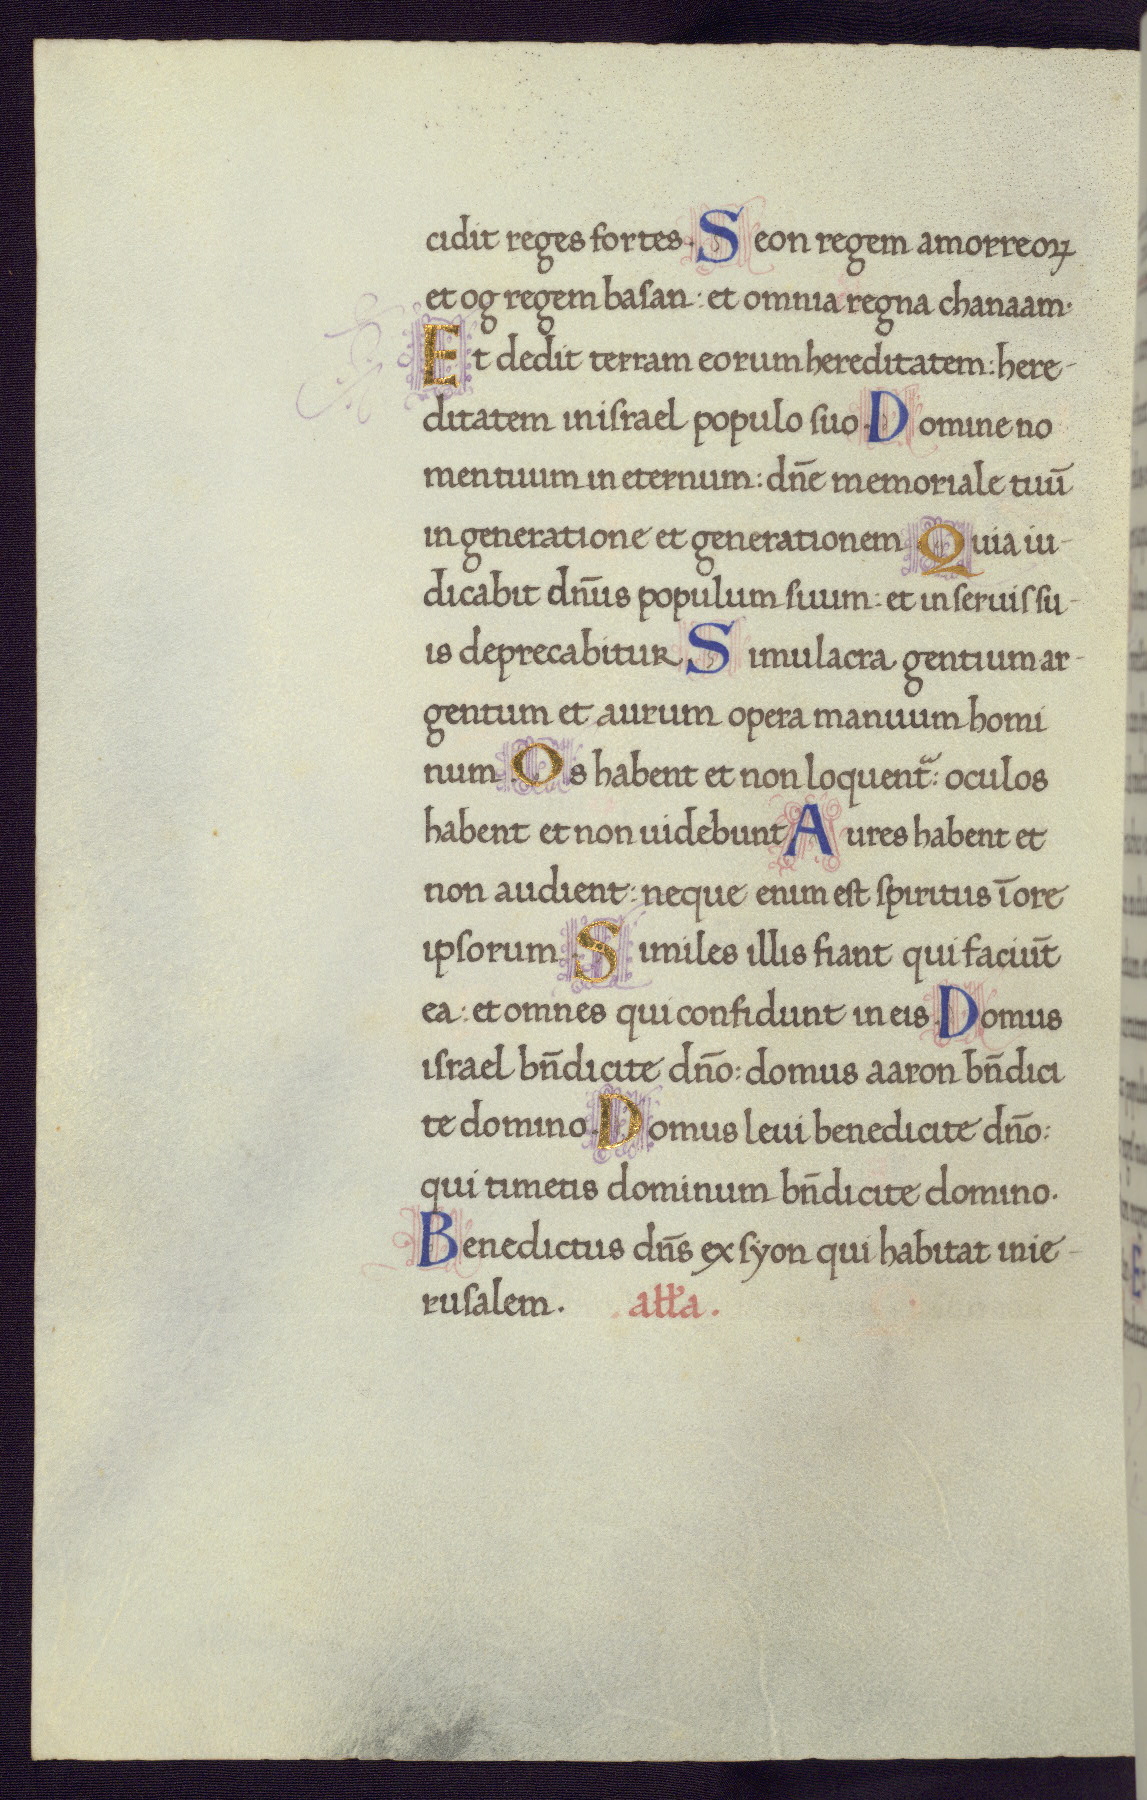 cidit reges fortes. Seon regem amorreoꝝ
et og regem basan: et omnia regna chanaam.
Et dedit terram eorum hereditatem: here-
ditatem in israel populo suo. Domine no
men tuum in eternum: dn̄e memoriale tuū
in generatione et generationem. Quia iu-
dicabit dn̄us populum suum: et in seruis su-
is deprecabitur. Simulacra gentium ar-
gentum et aurum opera manuum homi
num. Os habent et non loquent᷑: oculos
habent et non uidebunt. Aures habent et
non audient: neque enim est spiritus ī ore
ipsorum. Similes illis fiant qui faciūt
ea: et omnes qui confidunt in eis. Domus
israel bn̄dicite dn̄o: domus aaron bn̄dici
te domino. Domus leui benedicite dn̄o:
qui timetis dominum bn̄dicite domino.
Benedictus dn̄s ex syon qui habitat in ie-
rusalem. . aƚƚa .